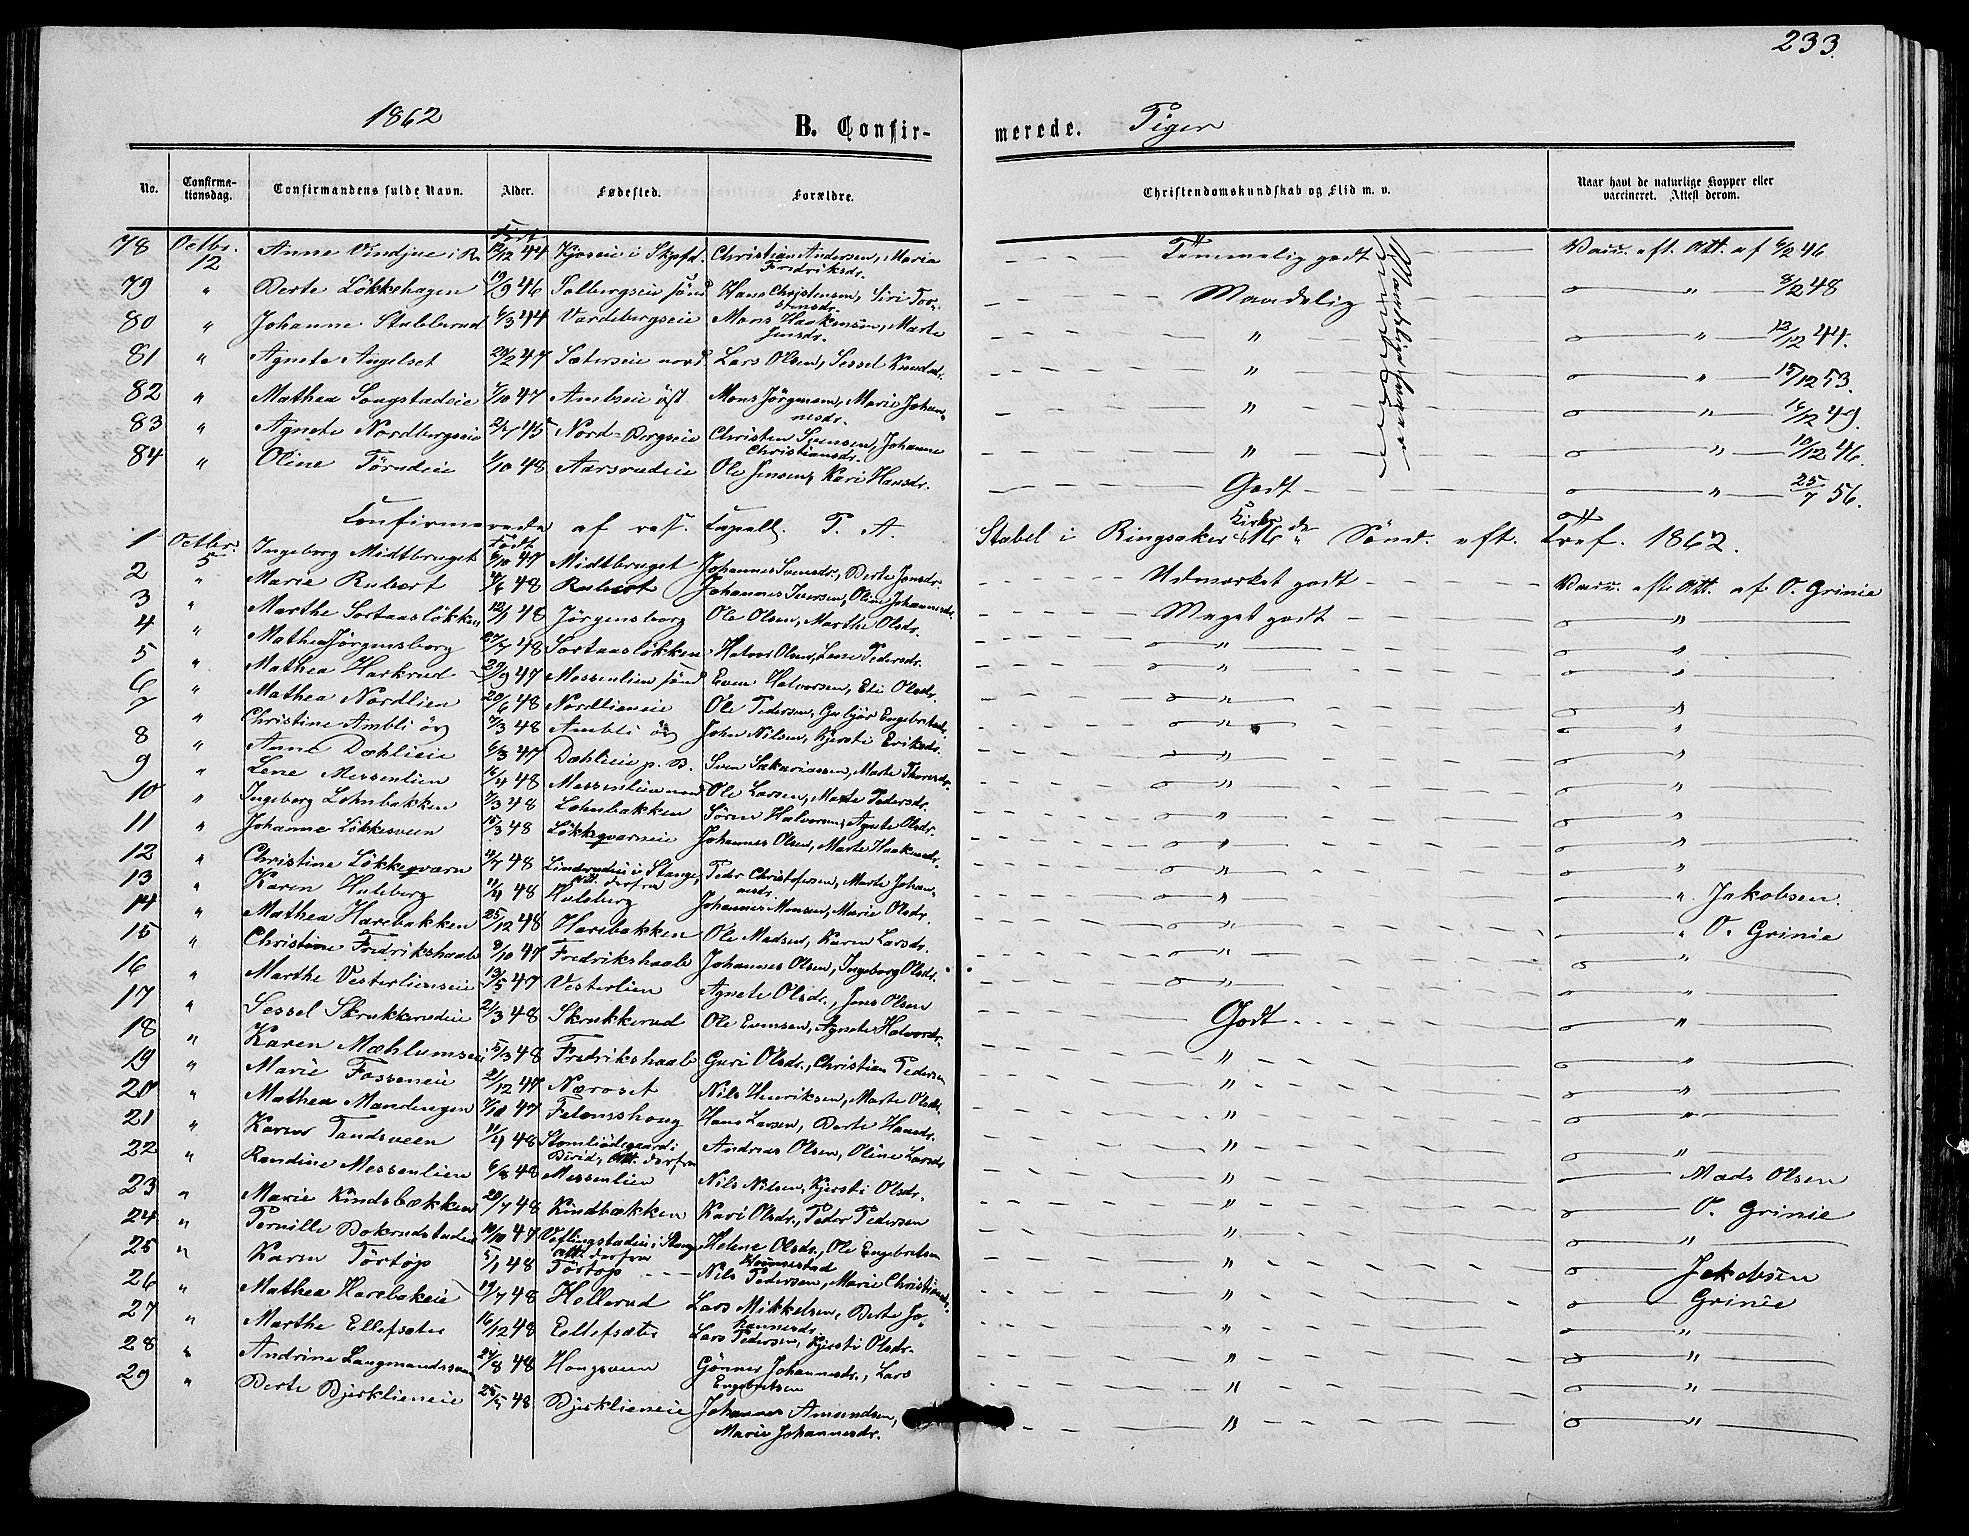 233.
1862
B. Confir-
merede. Piger
No.
Confirma-
tionsdag.
Confirmandens fulde Navn.
Alder.
Fødested.
Forældre.
Christendomskundskab og Flid m. v.
Naar havt de naturlige Kopper eller
vaccineret. Attest derom.
Født
78 Octbr. 12 Anne Vindju i R. 12/12 44 Kjoseie i Christian Andersen, Maria Fredriksdr. Temmelig godt Vacc. eft. Att. af 6/2 46
79 " Berte Løkkehagen 19/9 46 Solbergseie sønd Hans Christensen, Siri Torstensdr. Maadelig " 8/2 48
80 " Johanne Stubberud 6/3 44 Vardebergseie Mons Haakensen, Marte Jensdr. " " 13/12 44.
81 " Agnete Angelset 20/2 47 Sæterseie nord Lars Olsen, Sessel Knudsdr. " " 15/12 53.
82 " Mathea Songstadeie /10 47 Ambseie øst Mons Jørgensen, Marie Johannesdr. " " 16/12 49.
83 " Agnete Nordbergseie 2/7 45 Nord-Bergseie Christen Svensen, Johanne Christiansdr. " " 10/12 46.
84 " Oline Tørudeie /10 48 Aarsrudeie Ole Jensen, Kari Hansdr. Godt " 25/7 56.
Confirmerede af res. Capell. P. A. Stabel i Ringsaker Kirke Sønd. eft. Tref. 1862.
Født
1 Octbr. 5 Ingeborg Midtbruget 6/10 47 Midtbruget Johannes Svensdr., Berte Jonsdr. Udmærket godt Vacc. efter Att. af O. Grinie
2 " Marie Rubert 4/6 48 Rubert Johannes Iversen, Oline Johannesdr. Meget godt "
3 " Marthe Sortaasløkken 12/1 48 Jørgensborg Ole Olsen, Marthe Olsdr. " "
4 " Mathea Jørgensborg 27/7 48 Sortaasløkken Halvor Olsen, Lene Pedersdr. " "
5 " Mathea Harkrud 29/9 47 Messenlien sønd Even Halvorsen, Eli Olsdr. " "
6 " Mathea Nordlien 20/6 48 Nordlieneie Ole Pedersen, Gubjør Engebretsdr. " "
7 " Christine Ambli øv 7/3 48 Ambli øv John Nilsen, Kjersti Eriksdr. " "
8 " Anne Dæhlieie 6/3 47 Dæhlieie p. B. Sven Sakariassen, Marte Thoresdr. " "
9 " Lene Messenlien 16/4 48 Messenlien nord Ole Larsen, Marte Pedersdr. " "
10 " Ingeborg Lohnbakken 7/3 48 Lohnbakken Søren Halvorsen, Agnete Olsdr. " "
11 " Johanne Løkkesveen 15/3 48 Løkkeqværneie Johannes Olsen, Marte Haakensdr. " "
12 " Christine Løkkeqværn 11/7 48 Linderudeie i Stange, Att. derfra Peder Christofersen, Marte Johannesdr. " "
13 " Karen Huleberg 11/4 48 Huleberg Johannes Monsen, Marie Olsdr. " " Jakobsen.
14 " Mathea Harebakken 25/12 48 Harebakken Ole Madsen, Karen Larsdr. " " O. Grinie
15 " Christine Fredrikshaab 8/10 47 Fredrikshaab Johannes Olsen, Ingeborg Olsdr. " "
16 " Marthe Vesterlienseie 13/5 47 Vesterlien Agnete Olsdr., Jens Olsen " "
17 " Sessel Skrukkerudeie 21/3 48 Skrukkerud Ole Evensen, Agnete Halvorsdr. Godt "
18 " Karen Mæhlumseie 5/3 48 Fredrikshaab Guri Olsdr., Christian Pedersen " "
19 " Marie Fosseneie 21/12 47 Næroset Nils Henriksen, Marte Olsdr. " "
20 " Mathea Mandengen /10 47 Hans Larsen, Berte Hansdr. " "
21 " Karen Tandsveen 11/4 48 Stomliødegaard i Birid, Att. derfra Andreas Olsen, Oline Larsdr. " "
22 " Randine Messenlien 6/8 48 Messenlien Nils Nilsen, Kjersti Olsdr. " Mads Olsen
23 " Marie Kindsbækken 28/7 48 Kindbækken Kari Olsdr., Peder Pedersen " O. Grinie
24 " Pernille Bokrudstadeie 14/10 47 i Stange Att. derfra Helene Olsdr., Ole Engebretsen " "
25 " Karen Tørtop 5/1 48 Tørtop Nils Pedersen, Marie Christiansdr. " Jakobsen
26 " Mathea Harebakeie 19/7 48 Hellerud Lars Mikkelsen, Berte Johannesdr. " Grinie
27 " Marthe Ellefsæter 16/12 48 Ellefsæter Lars Pedersen, Kjersti Olsdr. " "
28 " Andrine Langmandssveen 24/8 48 Hougsveen Gønner Johannesdr., Lars Engebretsen " "
29 " Berte Bjerklieneie 25/5 48 Bjerklieneie Johannes Amundsen, Marie Johannesdr. " "